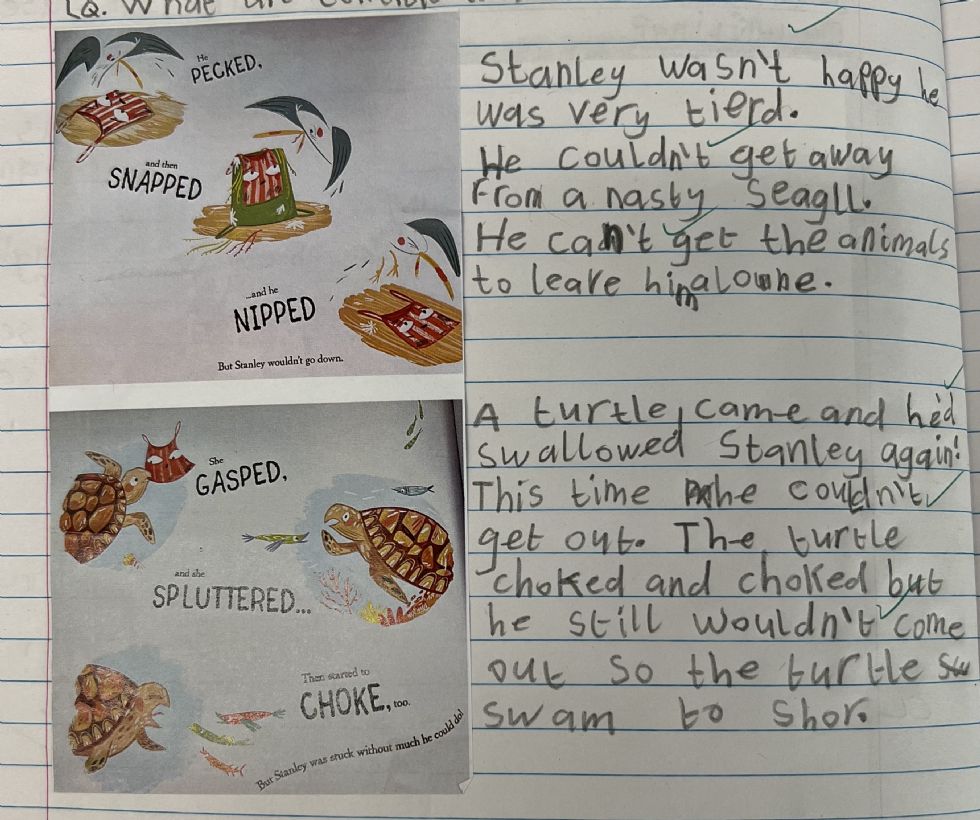 LQ. What are
He
PECKED,
and then
SNAPPED
...and he
NIPPED
But Stanley wouldn't go down.
Stanley wasn't happy he
was very tierd.
He couldn't get away
From a nasty Seagll.
He can't get the animals
to leave him alowne.
She
GASPED,
and she
SPLUTTERED...
Then started to
CHOKE, too.
But Stanley was stuck without much he could do!
A turtle came and he'd
swallowed Stanley again!
This time he couldn't
get out. The turtle
choked and choked but
he still wouldn't come
out so the turtle sw
swam to shor.